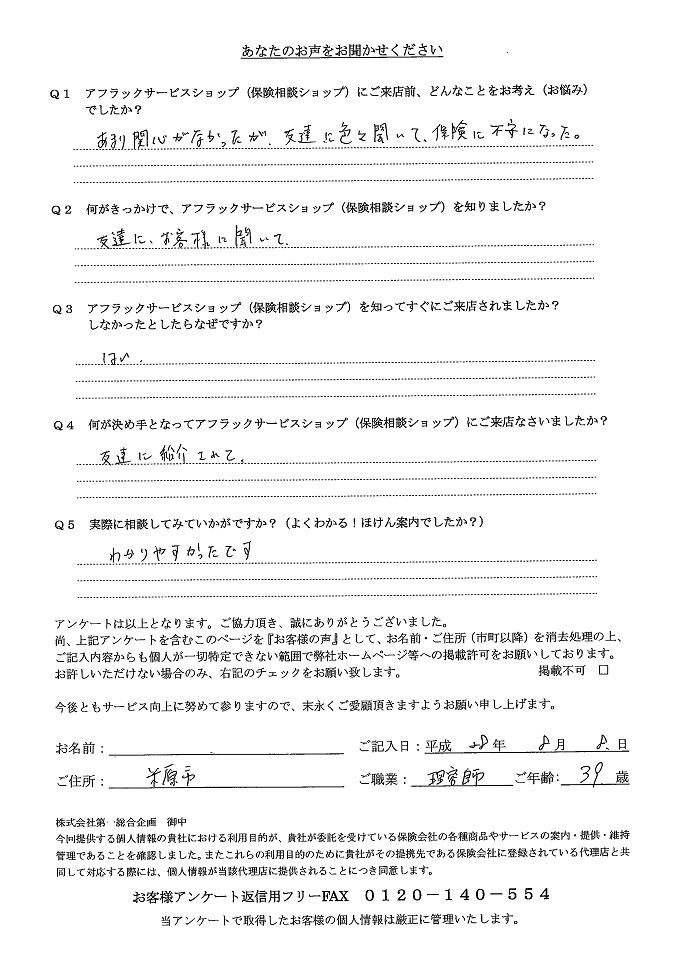 あなたのお声をお聞かせください
Q1 アフラックサービスショップ(保険相談ショップ)にご来店前、どんなことをお考え(お悩み)
でしたか?
あまり関心がなかったが、友達に色々聞いて、保険に不安になった。
Q2 何がきっかけで、アフラックサービスショップ(保険相談ショップ)を知りましたか?
友達に、お客様に聞いて、
Q3 アフラックサービスショップ(保険相談ショップ)を知ってすぐにご来店されましたか?
しなかったとしたらなぜですか?
はい。
Q4 何が決め手となってアフラックサービスショップ(保険相談ショップ)にご来店なさいましたか?
友達に紹介されて。
Q5 実際に相談してみていかがですか?(よくわかる!ほけん案内でしたか?)
わかりやすかったです
アンケートは以上となります。ご協力頂き、誠にありがとうございました。
尚、上記アンケートを含むこのページを『お客様の声』として、お名前・ご住所(市町以降)を消去処理の上、
ご記入内容からも個人が一切特定できない範囲で弊社ホームページ等への掲載許可をお願いしております。
お許しいただけない場合のみ、右記のチェックをお願い致します。 掲載不可 □
今後ともサービス向上に努めて参りますので、末永くご愛顧頂きますようお願い申し上げます。
お名前: ご記入日:平成 28年 8月 8日
ご住所: 米原市 ご職業: 理容師 ご年齢: 39 歳
株式会社第一総合企画 御中
今回提供する個人情報の貴社における利用目的が、貴社が委託を受けている保険会社の各種商品やサービスの案内・提供・維持
管理であることを確認しました。またこれらの利用目的のために貴社がその提携先である保険会社に登録されている代理店と共
同して対応する際には、個人情報が当該代理店に提供されることにつき同意します。
お客様アンケート返信用フリーFAX 0120-140-554
当アンケートで取得したお客様の個人情報は厳正に管理いたします。